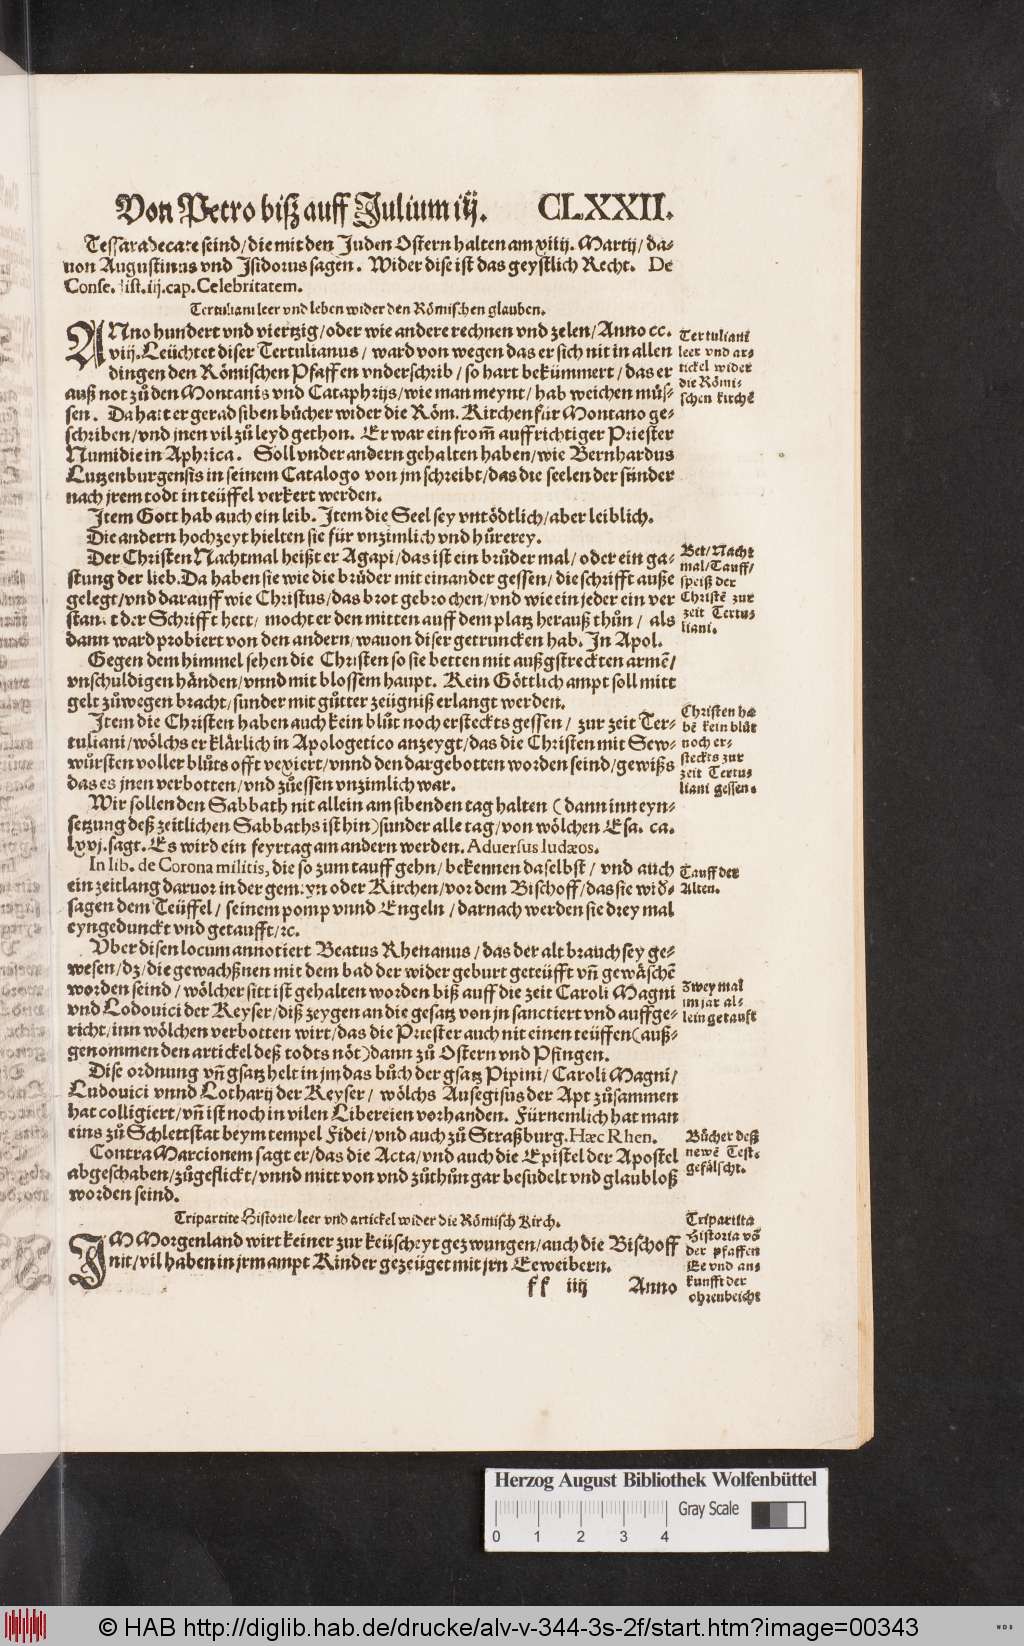 Von Petro biß auff Julium iij. CLXXII.
Tessaradecare seind/ die mit den Juden Ostern halten am xiiij. Martij/ da-
uon Augustinus vnd Isidorus sagen. Wider dise ist das geystlich Recht. De
Conse. dist. iij. cap. Celebritatem.
Tertuliani leer vnd leben wider den Römischen glauben.
ANno hundert vnd viertzig/ oder wie andere rechnen vnd zelen/ Anno cc.
viij. Leüchtet diser Tertulianus/ ward von wegen das er sich nit in allen
dingen den Römischen Pfaffen vnderschrib/ so hart bekümmert/ das er
auß not zů den Montanis vnd Cataphrijs/ wie man meynt/ hab weichen müs-
sen. Da hat er gerad siben bücher wider die Röm. Kirchen für Montano ge-
schriben/ vnd jnen vil zů leyd gethon. Er war ein from̃ auffrichtiger Priester
Numidie in Aphrica. Soll vnder andern gehalten haben/ wie Bernhardus
Lutzenburgensis in seinem Catalogo von jm schreibt/ das die seelen der sünder
nach jrem todt in teüffel verkert werden.
Item Gott hab auch ein leib. Item die Seel sey vntödtlich/ aber leiblich.
Die andern hochzeyt hielten sie für vnzimlich vnd hůrerey.
Der Christen Nachtmal heißt er Agapi/ das ist ein brůder mal/ oder ein ga-
stung der lieb. Da haben sie wie die brüder mit einander gessen/ die schrifft auße
gelegt/ vnd darauff wie Christus/ das brot gebrochen/ vnd wie ein jeder ein ver
stand der Schrifft hett/ mocht er den mitten auff dem platz herauß thůn/ als
dann ward probiert von den andern/ wauon diser getruncken hab. In Apol.
Gegen dem himmel sehen die Christen so sie betten mit außgstreckten armẽ/
vnschuldigen händen/ vnnd mit blossem haupt. Kein Göttlich ampt soll mitt
gelt zůwegen bracht/ sunder mit gůtter zeügniß erlangt werden.
Item die Christen haben auch kein blůt noch ersteckts gessen/ zur zeit Ter-
tuliani/ wölchs er klärlich in Apologetico anzeygt/ das die Christen mit Sew-
würsten voller blůts offt vexiert/ vnnd den dargebotten worden seind/ gewißs
das es jnen verbotten/ vnd zůessen vnzimlich war.
Wir sollen den Sabbath nit allein am sibenden tag halten (dann inn eyn-
setzung deß zeitlichen Sabbaths ist hin) sunder alle tag/ von wölchen Esa. ca.
lxvj. sagt. Es wird ein feyrtag am andern werden. Aduersus Iudæos.
In lib. de Corona militis, die so zum tauff gehn/ bekennen daselbst/ vnd auch
ein zeitlang daruor in der gemeyn oder Kirchen/ vor dem Bischoff/ das sie wid-
sagen dem Teüffel/ seinem pomp vnnd Engeln/ darnach werden sie drey mal
eyngedunckt vnd getaufft/ ꝛc.
Vber disen locum annotiert Beatus Rhenanus/ das der alt brauch sey ge-
wesen/ dz/ die gewachßnen mit dem bad der wider geburt geteüfft vñ gewäschẽ
worden seind/ wölcher sitt ist gehalten worden biß auff die zeit Caroli Magni
vnd Lodouici der Keyser/ diß zeygen an die gesatz von jn sanctiert vnd auffge-
richt/ inn wölchen verbotten wirt/ das die Priester auch nit einen teüffen (auß-
genommen den artickel deß todts nöt) dann zů Ostern vnd Pfingen.
Dise ordnung vñ gsatz helt in jm das bůch der gsatz Pipini/ Caroli Magni/
Ludouici vnnd Lotharij der Keyser/ wölchs Ausegisus der Apt zůsammen
hat colligiert/ vñ ist noch in vilen Libereien vorhanden. Fürnemlich hat man
eins zů Schlettstat beym tempel Fidei/ vnd auch zů Straßburg. Hæc Rhen.
Contra Marcionem sagt er/ das die Acta/ vnd auch die Epistel der Apostel
abgeschaben/ zůgeflickt/ vnnd mitt von vnd zůthůn gar besudelt vnd glaubloß
worden seind.
Tripartite Historie/ leer vnd artickel wider die Römisch Kirch.
IM Morgenland wirt keiner zur keüscheyt gezwungen/ auch die Bischoff
nit/ vil haben in jrm ampt Kinder gezeüget mit jrn Eeweibern.
kk iiij Anno
Tertuliani
leer vnd ar-
tickel wider
die Römi-
schen kirchẽ
Bet/ Nacht
mal/ Tauff/
speiß der
Christẽ zur
zeit Tertu-
liani.
Christen ha
bẽ kein blůt
noch er-
steckts zur
zeit Tertu-
liani gessen.
Tauff der
Alten.
Zwey mal
im jar al-
lein getauft
Bücher deß
newẽ Test.
gefälscht.
Tripartita
Historia võ
der pfaffen
Ee vnd an-
kunfft der
ohrenbeicht
Herzog August Bibliothek Wolfenbüttel
0 1 2 3 4 Gray Scale
© HAB http://diglib.hab.de/drucke/alv-v-344-3s-2f/start.htm?image=00343